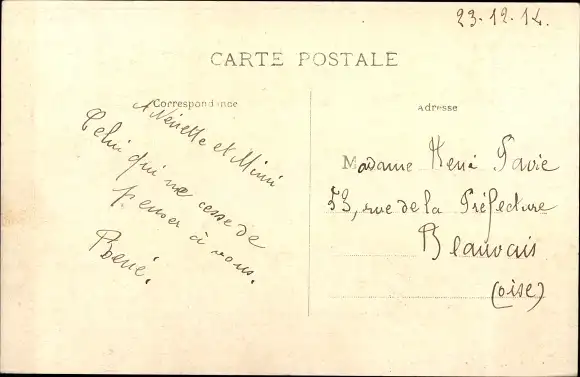 23-12-14.
CARTE POSTALE
Correspondance
Adresse
A Nénette et Mimi
Celui qui ne cesse de
penser à vous.
René.
Madame René Pavie
53, rue de la Préfecture
Beauvais
(Oise)